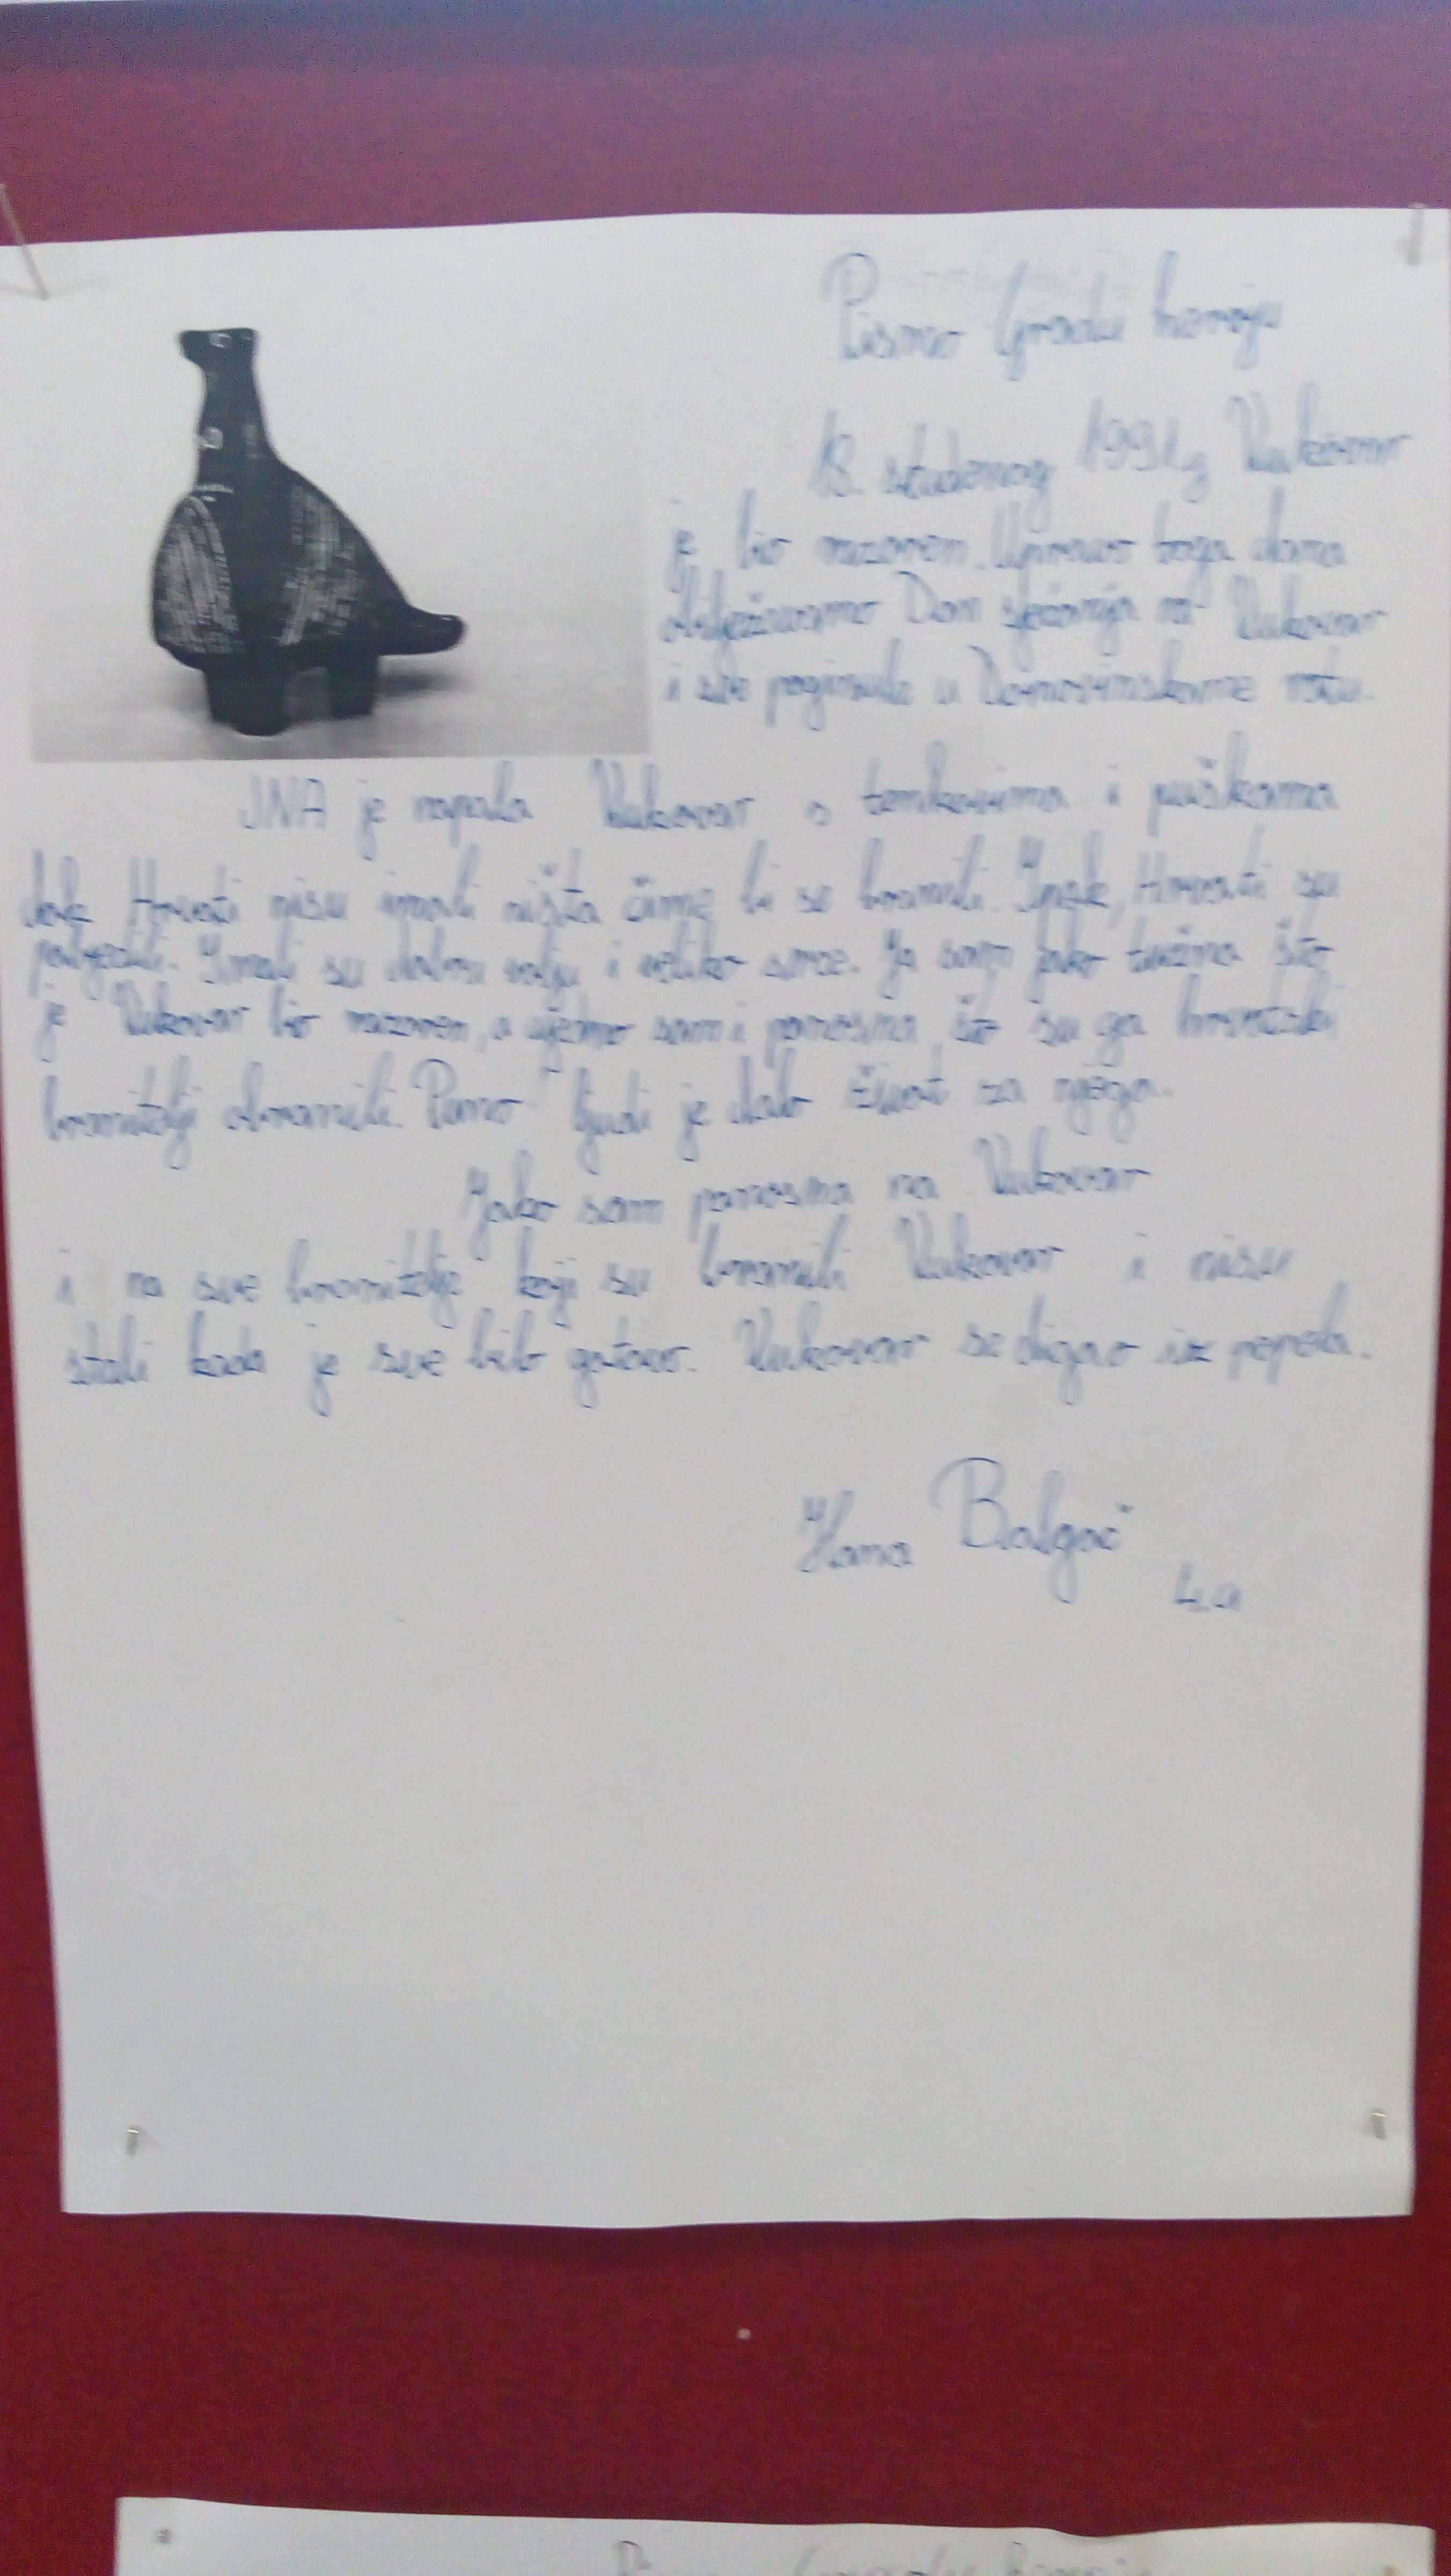 Pismo Gradu heroju
18. studenog 1991.g Vukovar
je bio razoren. Upravo toga dana
obilježavamo Dan sjećanja na Vukovar
i sve poginule u Domovinskome ratu.
JNA je napala Vukovar s tenkovima i puškama
dok Hrvati nisu imali ništa čime bi se branili. Ipak, Hrvati su
pobjedili. Imali su dobru volju i veliko srce. Ja sam jako tužna što
je Vukovar bio razoren, a ujedno sam i ponosna što su ga hrvatski
branitelji obranili. Puno ljudi je dalo život za njega.
Jako sam ponosna na Vukovar
i na sve branitelje koji su branili Vukovar i nisu
stali kada je sve bilo gotovo. Vukovar se digao iz pepela.
Hana Balgač
4.a